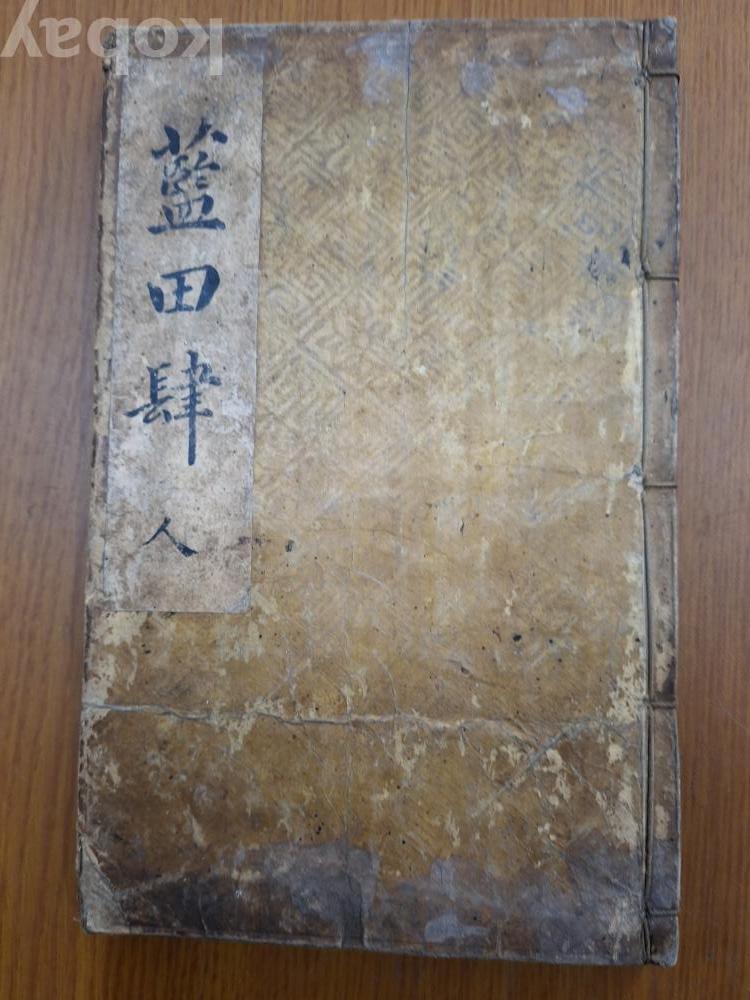 藍田肆
人
kobay